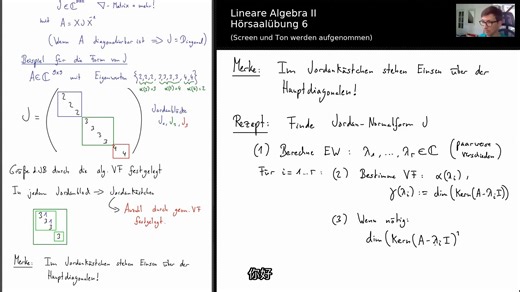 J ∈ ℂⁿˣⁿ
mit A = XJX⁻¹
(Wenn A diagonalisierbar ist ⟹ J = Diagonal)
Beispiel für die Form von J
A ∈ ℂ⁹ˣ⁹ mit Eigenwerten {2,2,2, 3,3,3,3, 4,4}
α(2)=3 α(3)=4 α(4)=2
J =
2
2
2
3
3
3
3
4
4
Jordanblöcke
J₁, J₂, J₃
Größe d. JB durch die alg. VF festgelegt
In jedem Jordanblock → Jordankästchen
→ Anzahl durch geom. VF
festgelegt.
3 1
3 1
3
3
Merke: Im Jordankästchen stehen Einsen über der
Hauptdiagonalen!
Lineare Algebra II
Hörsaalübung 6
(Screen und Ton werden aufgenommen)
Merke: Im Jordankästchen stehen Einsen über der
Hauptdiagonalen!
Rezept: Finde Jordan-Normalform J
(1) Berechne EW: λ₁, ..., λᵣ ∈ ℂ (paarweise
verschieden)
Für i = 1...r: (2) Bestimme VF: α(λᵢ),
γ(λᵢ) := dim(Kern(A-λᵢI))
(3) Wenn nötig:
dim(Kern(A-λᵢI)¹
你好